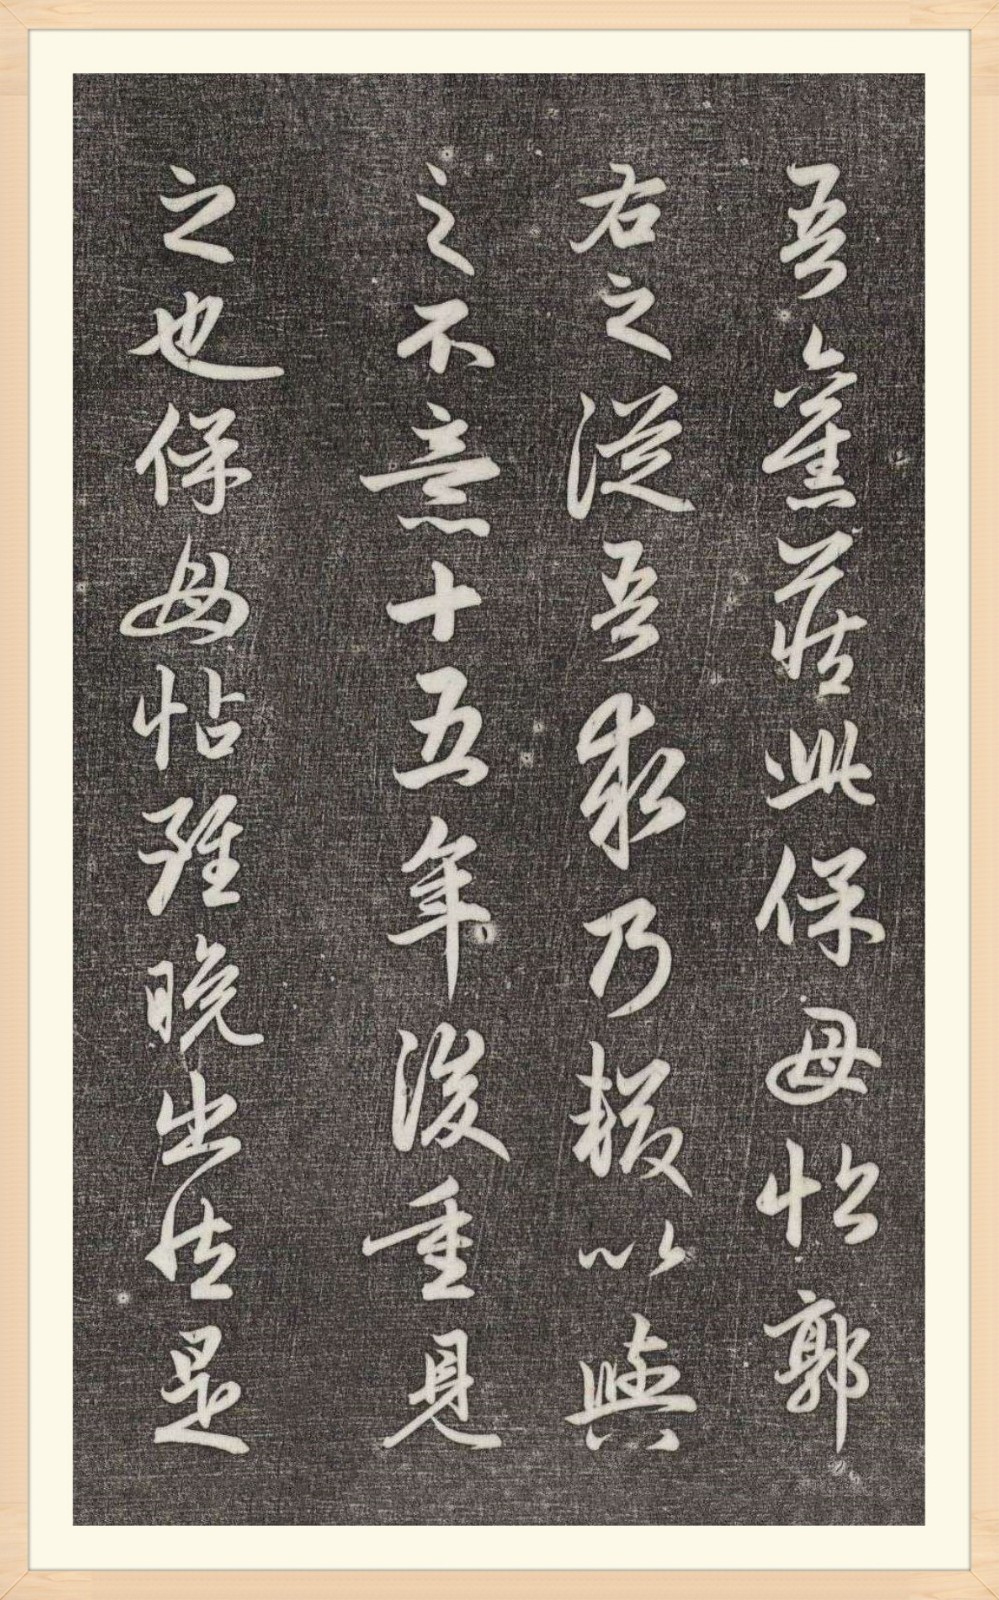 吾舊藏此保母帖郭
右之從吾求乃輟以與
之不意十五年後重見
之也保母帖雖晚出是